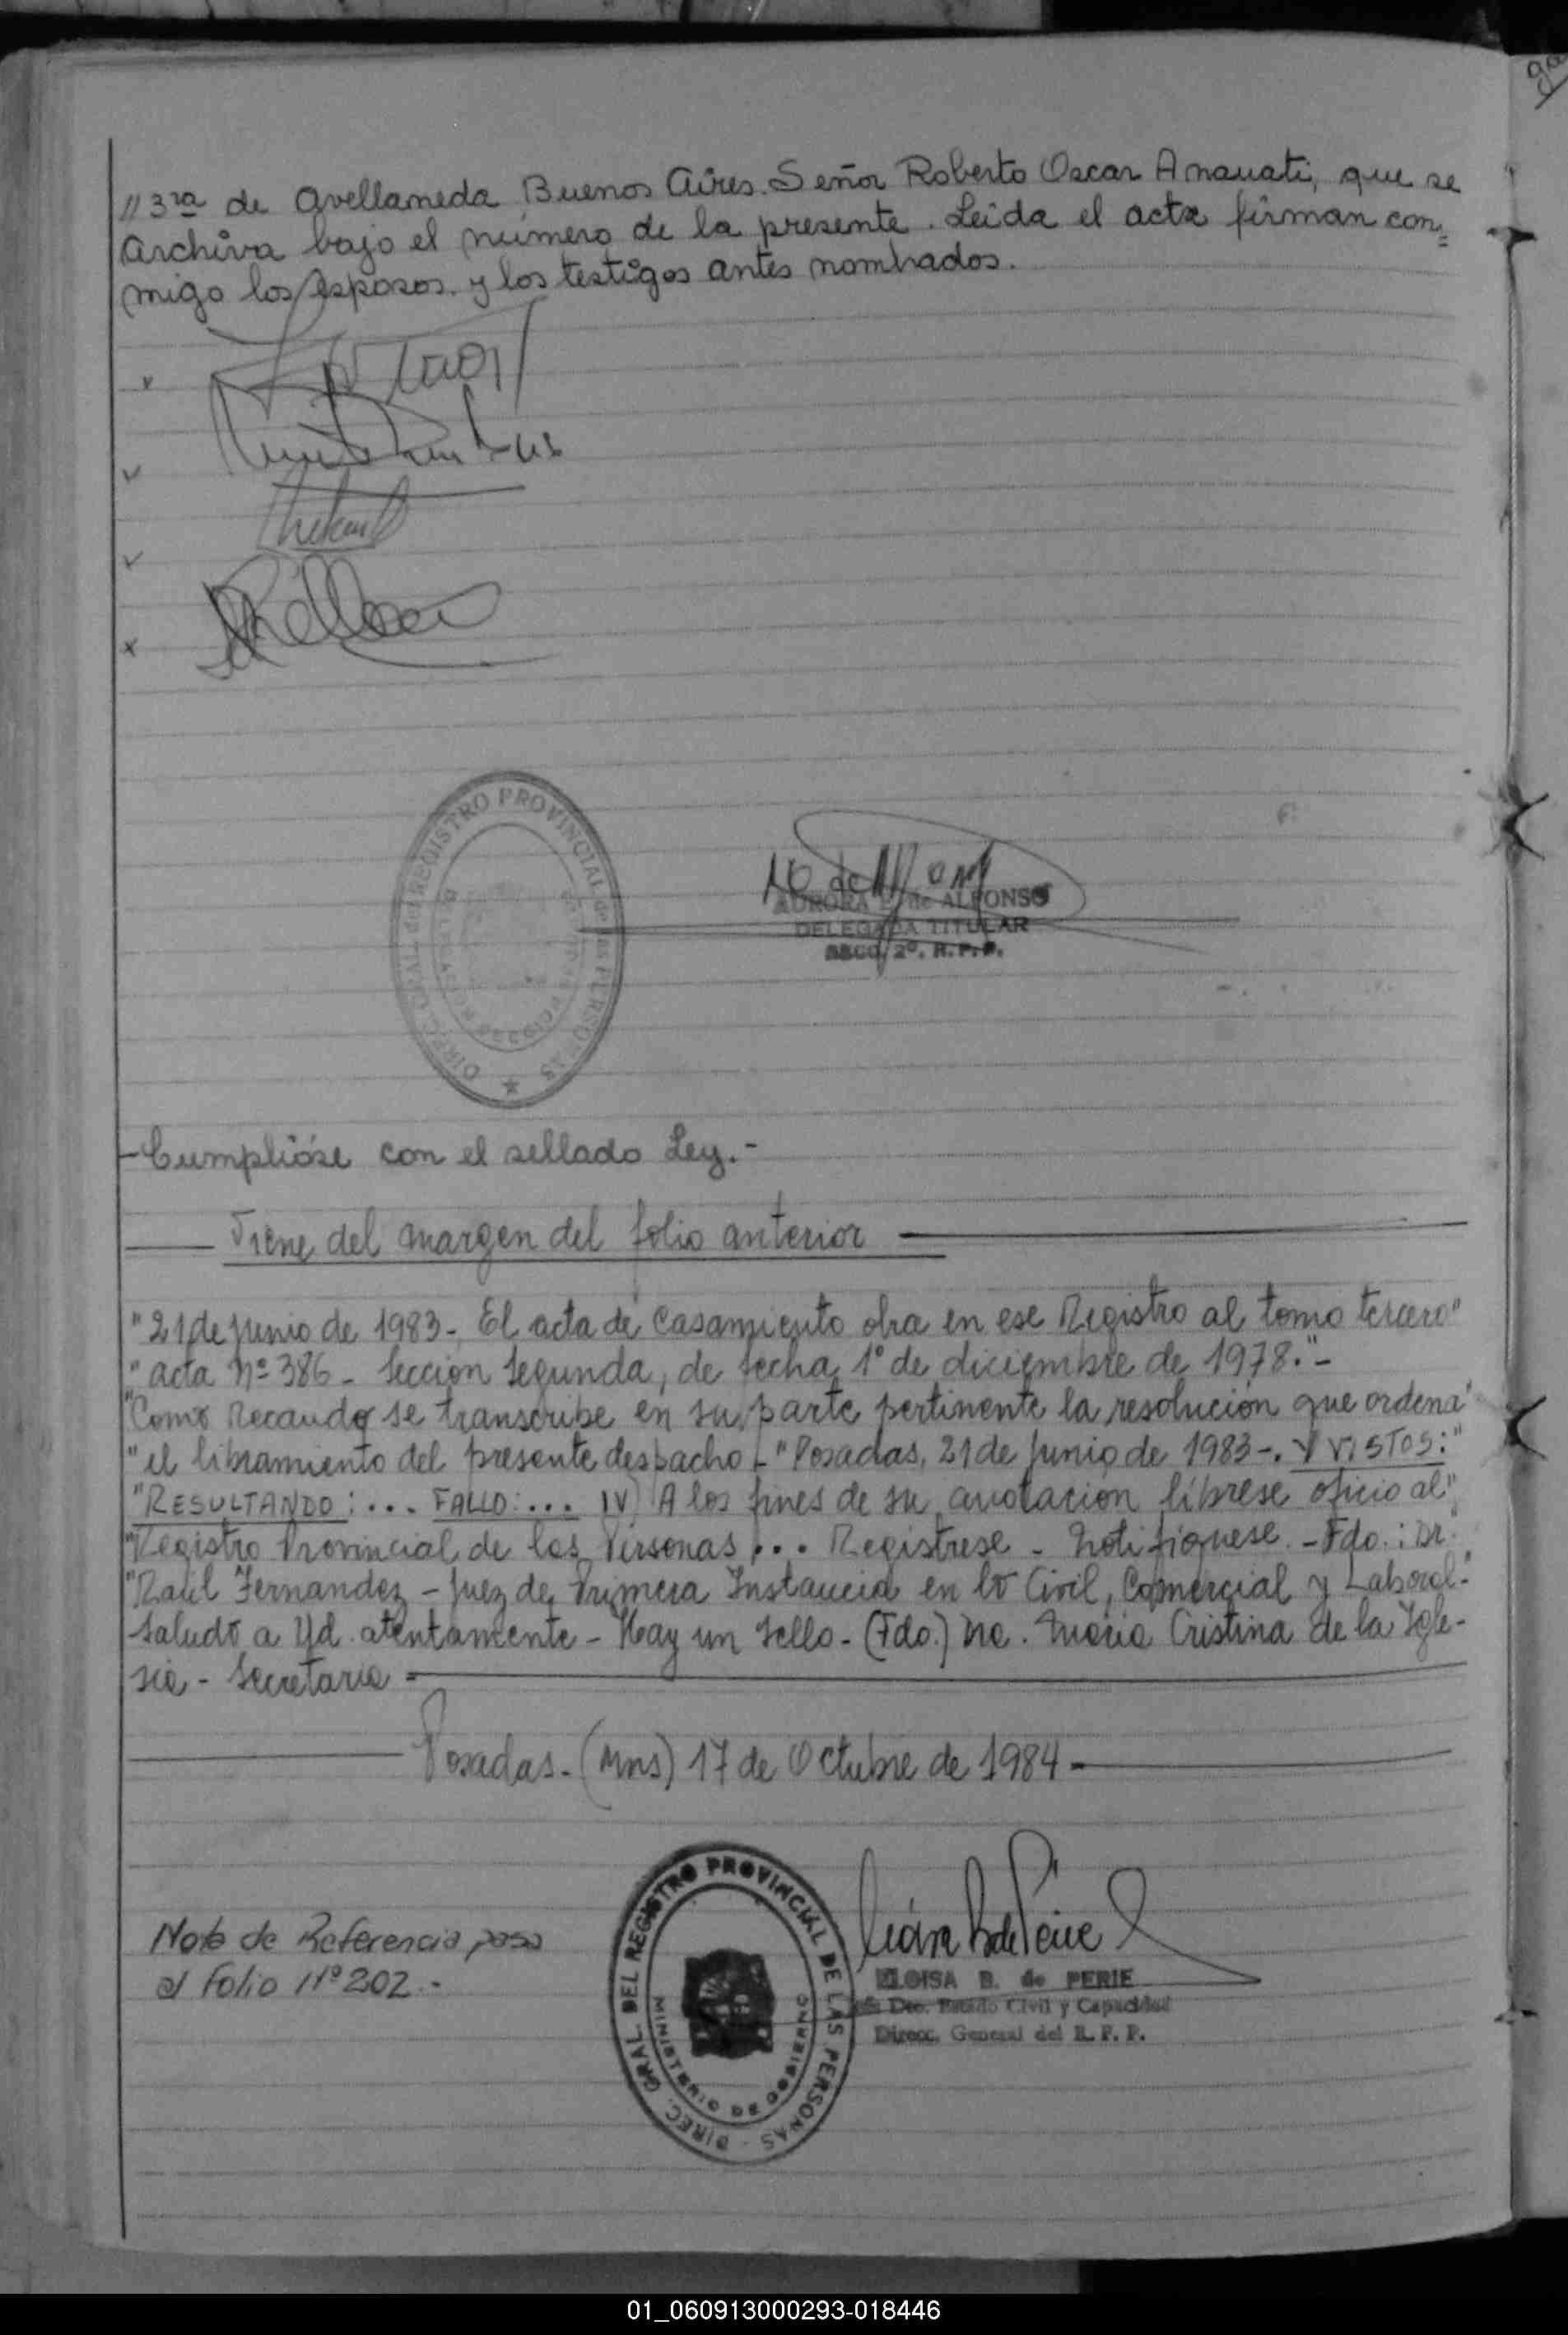 // 3ra de Avellaneda Buenos Aires. Señor Roberto Oscar Anauati, que se
Archiva bajo el número de la presente. Leida el acta firman con=
migo los esposos y los testigos antes nombrados.
DIREC. GRAL. del REGISTRO PROVINCIAL de las PERSONAS
AURORA de ALFONSO
DELEGADA TITULAR
SECC. 2º. R. P. P.
-Cumplióse con el sellado Ley.-
Viene del margen del folio anterior
"21 de junio de 1983-. El acta de casamiento obra en ese Registro al tomo tercero"
"acta Nº 386 - Sección Segunda, de fecha 1º de diciembre de 1978."-
"Como recaudo se transcribe en su parte pertinente la resolución que ordena"
"el libramiento del presente despacho - "Posadas, 21 de junio de 1983-. Y VISTOS:"
"RESULTANDO:... FALLO:... IV) A los fines de su anotación líbrese oficio al"
"Registro Provincial de las Personas... Regístrese - Notifíquese. - Fdo.: Dr."
"Raúl Fernandez - Juez de Primera Instancia en lo Civil, Comercial y Laboral-"
Saludo a Ud. atentamente - Hay un sello - (Fdo.) Maria Cristina de la Igle-
sia - Secretaria -
Posadas - (Mns) 17 de Octubre de 1984 -
Nota de Referencia pasa
al Folio Nº 202.-
DIREC. GRAL. DEL REGISTRO PROVINCIAL DE LAS PERSONAS
MINISTERIO DE GOBIERNO
ELOISA B. de PERIE
Dto. Estado Civil y Capacidad
Direcc. General del R. P. P.
01_060913000293-018446